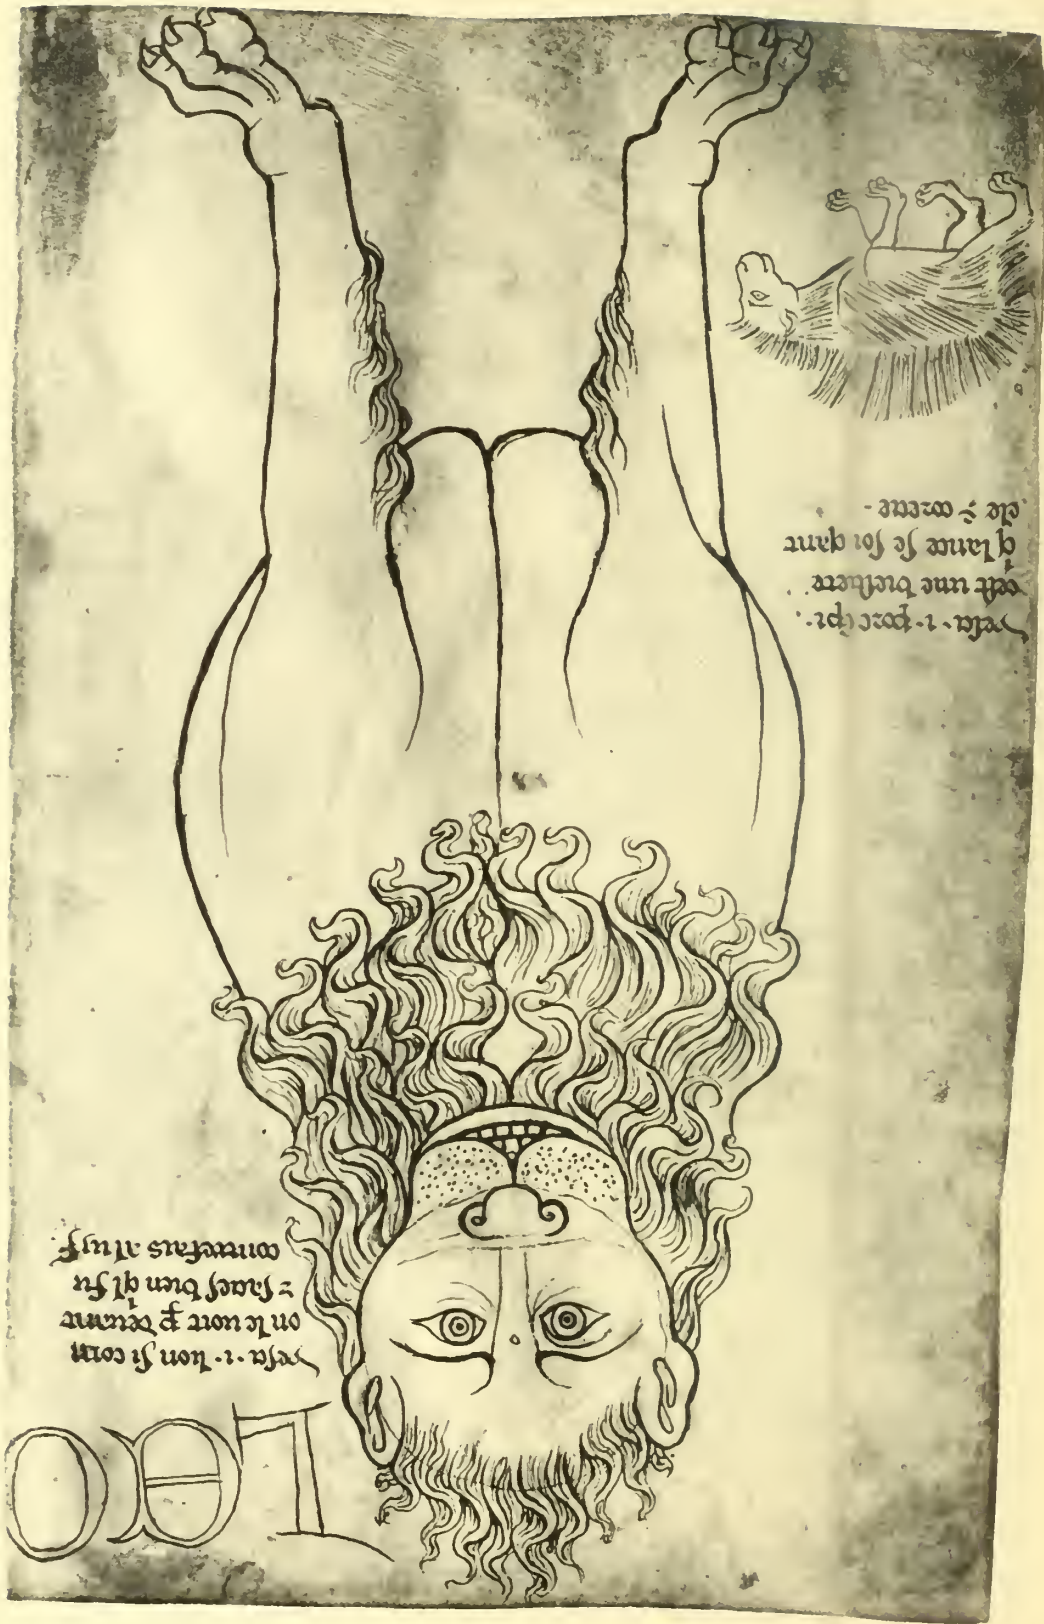 LEO
vesci .i. lion si com
on le voit ꝑ devant
⁊ sacies bien qͥl fu
contrefais al vif
vesci .i. porc espi.
cest une biestelete
qͥ lance se soi qant
ele ÷ corecie.